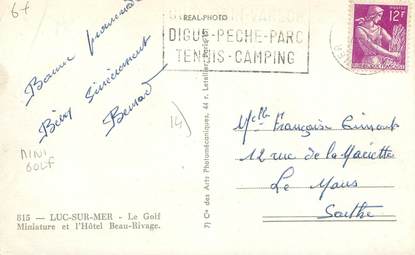 67
REAL-PHOTO
DIGUE-PECHE-PARC
TENNIS-CAMPING
POSTES
12F
Bonne promenade
Bien sincèrement
Bernard
MINI
GOLF
14)
815 — LUC-SUR-MER - Le Golf
Miniature et l'Hôtel Beau-Rivage.
Cie des Arts Photomécaniques, 44 r. Letellier, Paris
Melle Françoise
12 rue de la Mariette
Le Mans
Sarthe